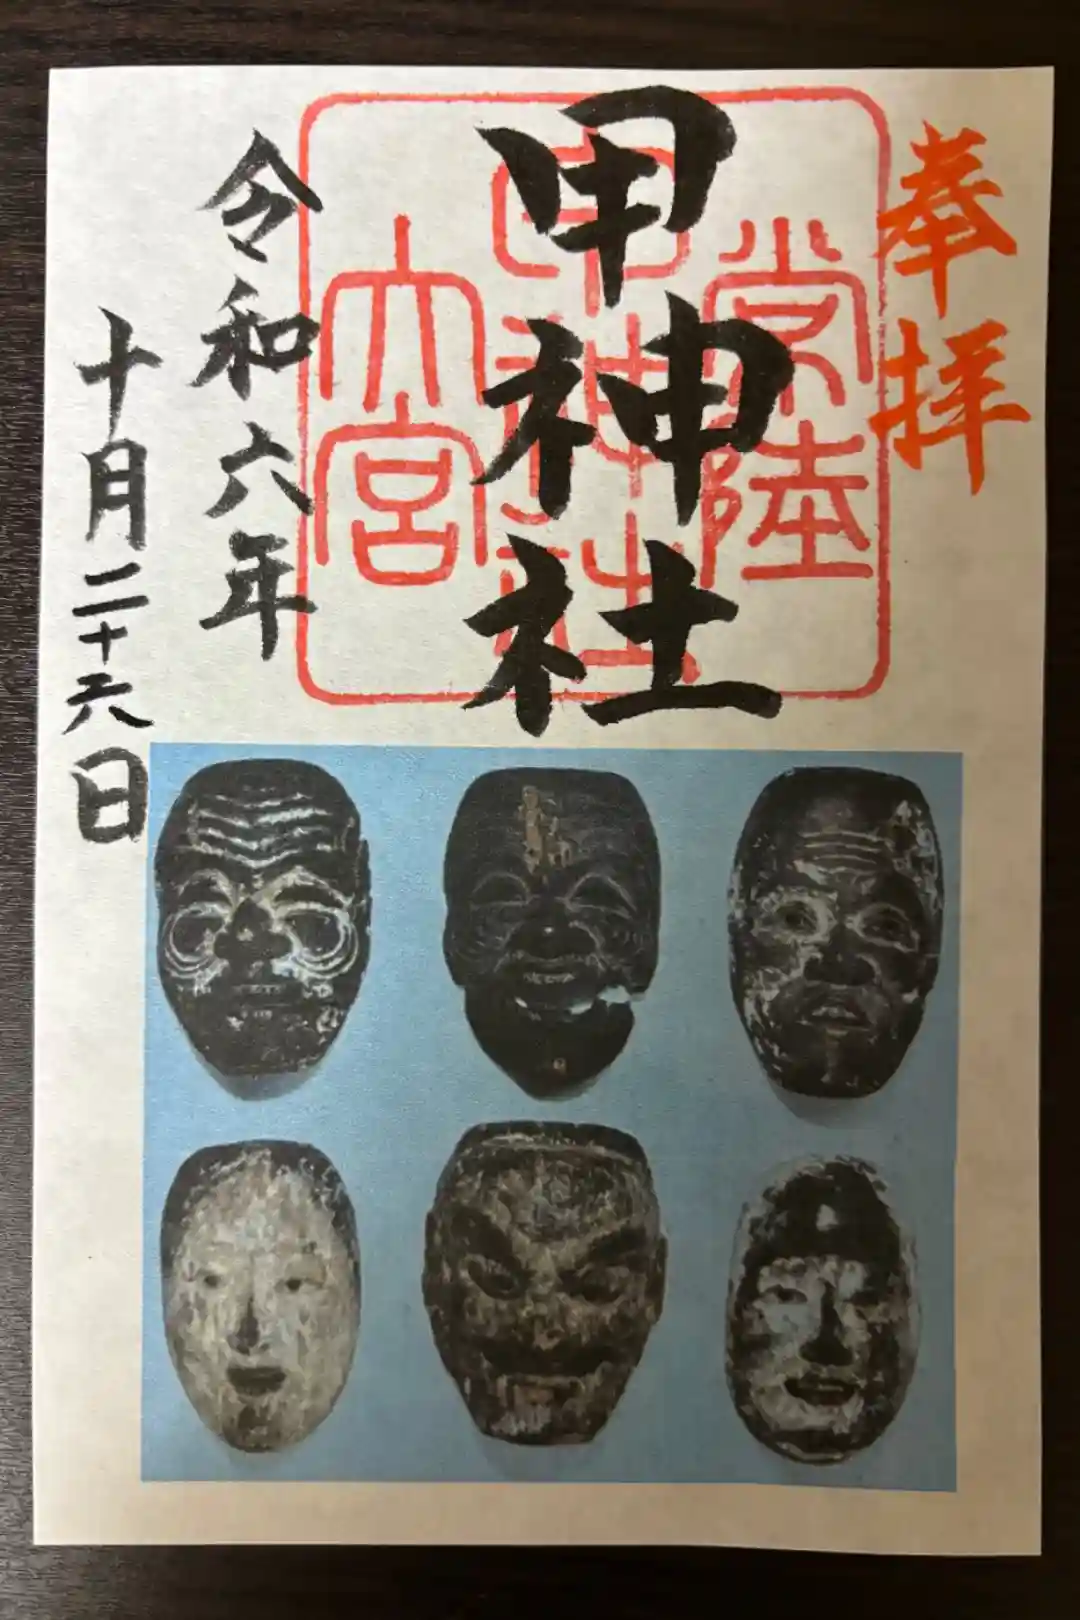 奉拝
常陸
甲神社
大宮
甲神社
令和六年
十月二十六日